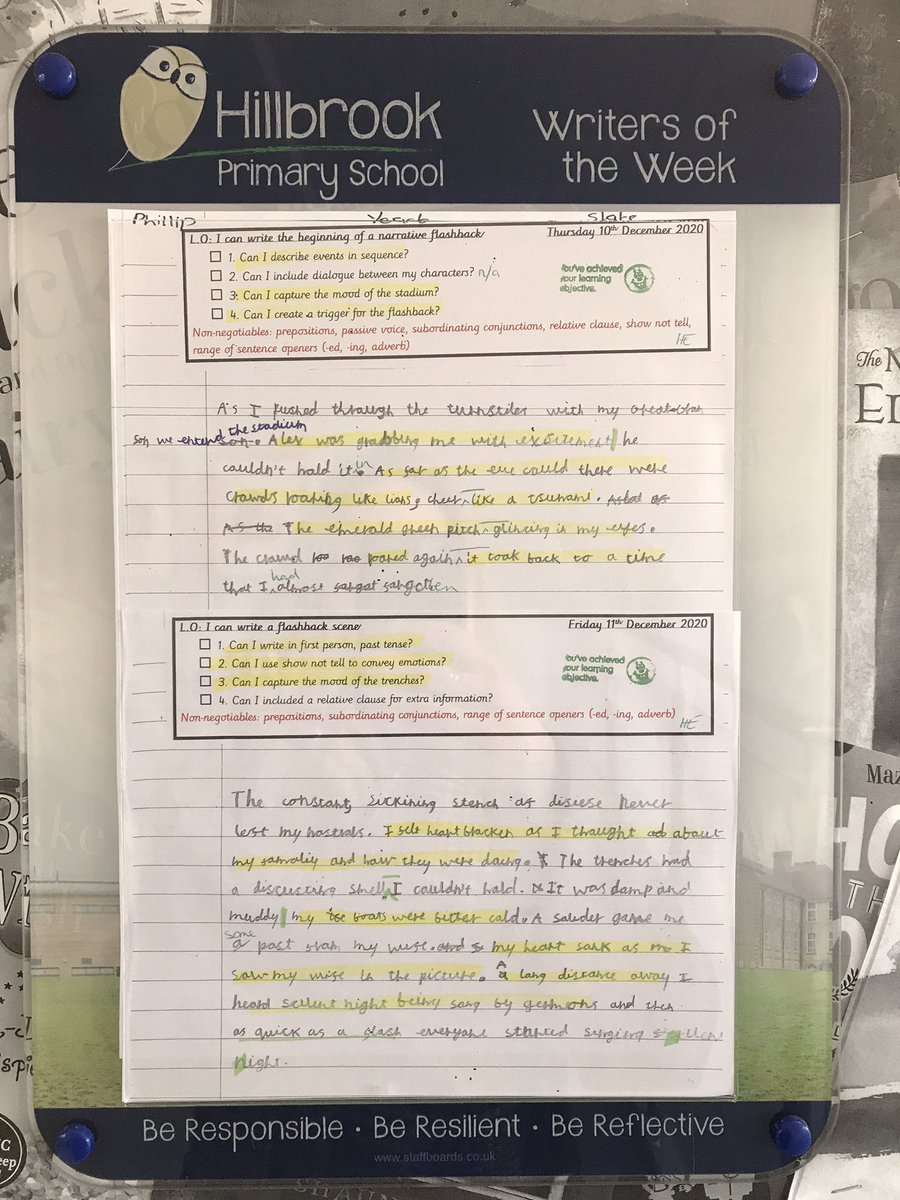 Hillbrook
Primary School
Writers of
the Week
Phillip Year 6 Slate
L.O: I can write the beginning of a narrative flashback Thursday 10th December 2020
1. Can I describe events in sequence?
2. Can I include dialogue between my characters? n/a
3. Can I capture the mood of the stadium?
4. Can I create a trigger for the flashback?
You've achieved
your learning
objective.
Non-negotiables: prepositions, passive voice, subordinating conjunctions, relative clause, show not tell,
range of sentence openers (-ed, -ing, adverb)
HE
As I pushed through the turnstiles with my
the stadium
Son we enterd Alex was grabbing me with exsitement he
couldn't hold it in As far as the eye could there were
crowds roaring like lions, cheer like a tsunami.
The emerald green pitch glincing in my eyes.
The crowd roared again it took back to a time
that I had almost forgotten
L.O: I can write a flashback scene Friday 11th December 2020
1. Can I write in first person, past tense?
2. Can I use show not tell to convey emotions?
3. Can I capture the mood of the trenches?
4. Can I included a relative clause for extra information?
You've achieved
your learning
objective.
Non-negotiables: prepositions, subordinating conjunctions, range of sentence openers (-ed, -ing, adverb)
HE
The constant, sickining stench of disiese never
left my nostrals. I felt heart bracken as I thought about
my famaliy and how they were doing. The trenches had
a discusting smell I couldn't hold. It was damp and
muddy my boots were bitter cold. A solider game me
some
a post from my wife. my heart sank as I
saw my wife in the picture. A long distance away I
heard scilent night being sang by germons and then
as quick as a flash everyone started singing
Night.
Be Responsible · Be Resilient · Be Reflective
www.staffboards.co.uk
The
Maz